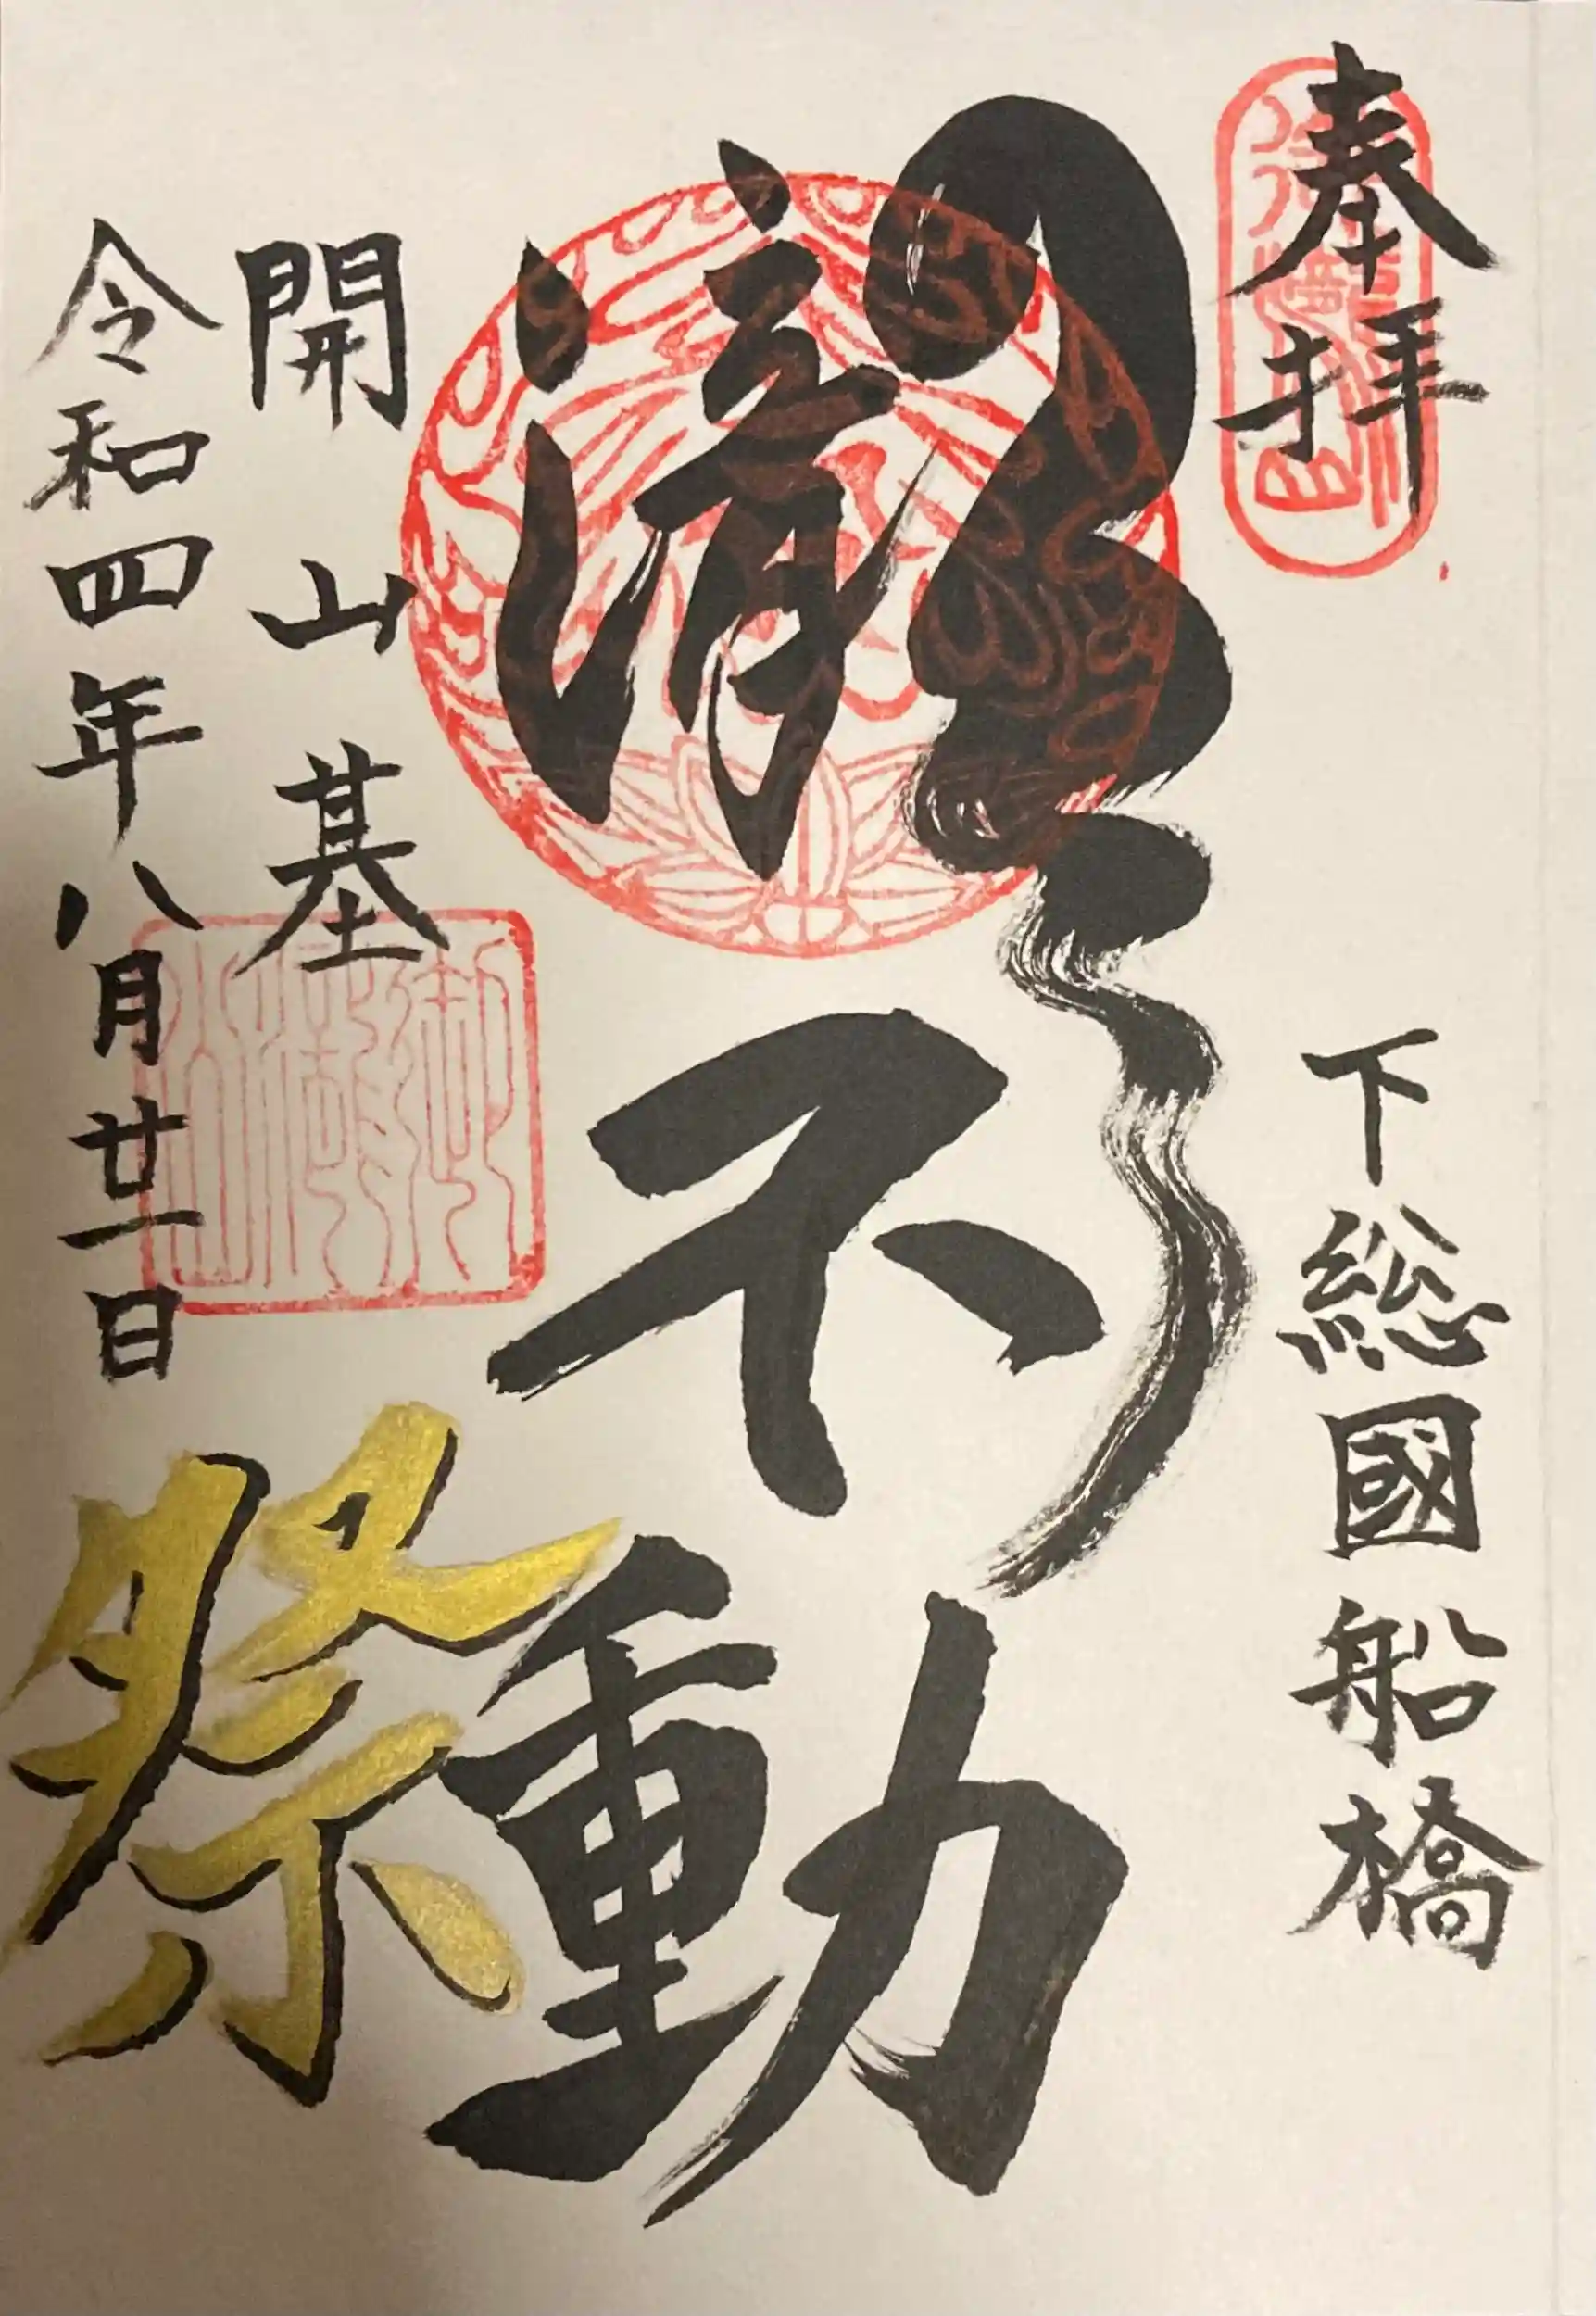 奉拝
下総國船橋
瀧不動
開山基
令和四年八月廿一日
祭